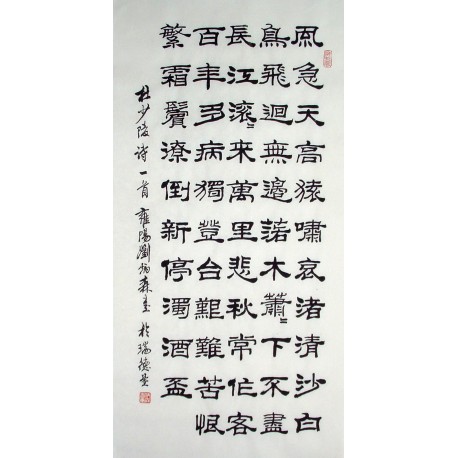 風急天高猿嘯哀渚清沙白
鳥飛迴無邊落木蕭〻下不盡
長江滾〻來萬里悲秋常作客
百年多病獨登台艱難苦恨
繁霜鬢潦倒新停濁酒盃
杜少陵诗一首 雍陽劉炳森書於瑞德